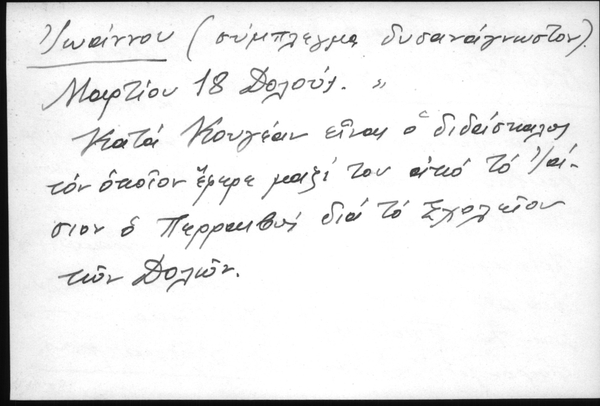 Ἰωάννου (σύμπλεγμα δυσανάγνωστον).
Μαρτίου 18 Δολούς. "
Κατά Κουγέαν εἶναι ὁ διδάσκαλος
τόν ὁποῖον ἔφερε μαζί του ἀπό τό Ἰά-
σιον ὁ Περραιβός διά τό Σχολεῖον
τῶν Δολῶν.